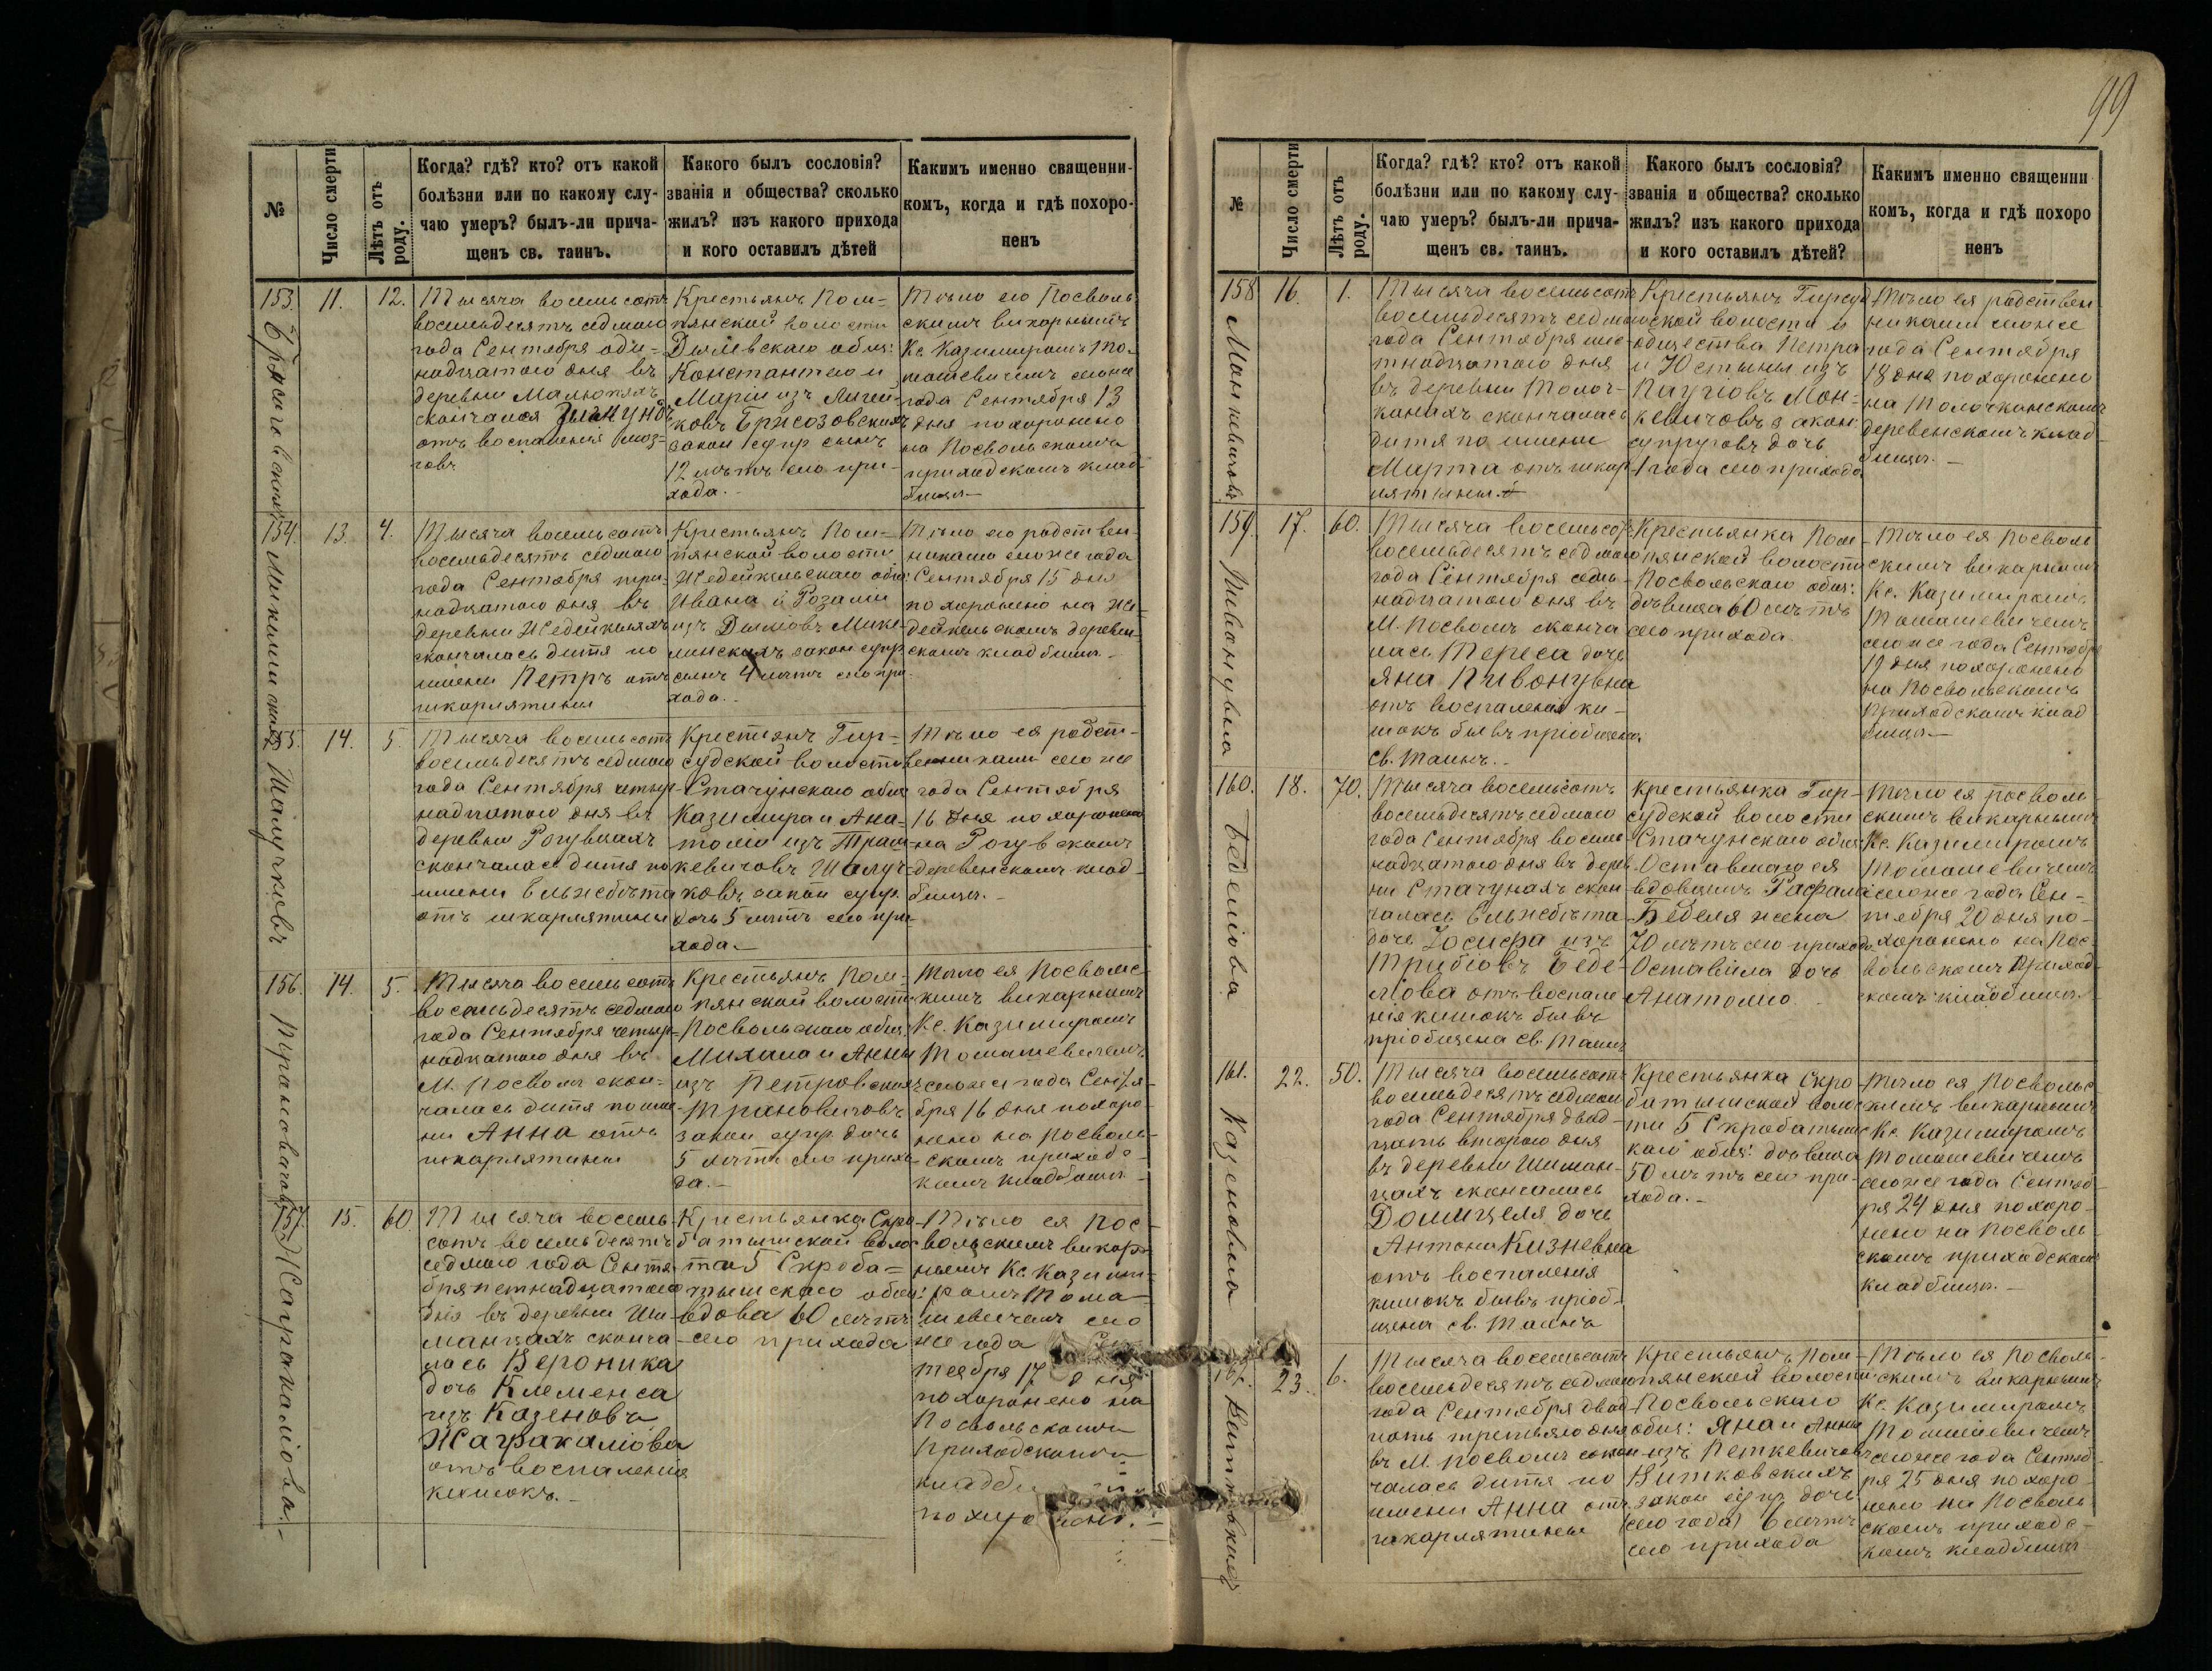 99
№
Число смерти
Лѣтъ отъ роду.
Когда? гдѣ? кто? отъ какой
болѣзни или по какому слу-
чаю умеръ? былъ-ли прича-
щенъ св. таинъ.
Какого былъ сословія?
званія и общества? сколько
жилъ? изъ какого прихода
и кого оставилъ дѣтей
Какимъ именно священни-
комъ, когда и гдѣ похоро-
ненъ
153.
11.
12.
Тысяча восемьсотъ
восемьдесятъ седмого
года Сентября оди-
надцатого дня въ
деревни
скончался
отъ воспаления моз-
говъ
Крестьянъ Пом-
пянской волости
общ:
Константею и
Маріи изъ
закон супр сынъ
12 лѣтъ сего при-
хода.
Тѣло его Посволь
скимъ викарнымъ
Кс. Казимиромъ То-
машевичемъ сегоже
года Сентября 13
дня похоронено
на Посвольскомъ
приходскомъ клад-
бищѣ
154.
13.
4.
Тысяча восемьсотъ
восемьдесятъ седмого
года Сентября три-
надцатого дня въ
деревни Жедейкеляхъ
скончалась дитя по
имени Петръ отъ
шкарлятины
Крестьянъ Пом-
пянской волости
Жедейкельскаго общ:
Ивана и Розалии
изъ
закон супр
сынъ 4 лѣтъ сего при-
хода.
Тѣло его родствен-
никами сегоже года
Сентября 15 дня
похоронено на Же-
дейкельскомъ деревен-
скомъ кладбищѣ
155.
14.
5.
Шалучковъ
Тысяча восемьсотъ
восемьдесятъ седмого
года Сентября четыр-
надцатого дня въ
деревни Рогувкахъ
скончалась дитя по
имени Ельжебѣта
отъ шкарлятины
Крестянъ Гир-
судской волости
Стачунскаго общ
Казимира и Ана-
толіи изъ
кевичовъ Шалуч-
ковъ закон супр.
дочь 5 лѣтъ сего при-
хода.
Тѣло ея родст-
венниками сегоже
года Сентября
16 дня похоронено
на Рогувскомъ
деревенскомъ клад-
бищѣ.
156.
14.
5.
Трановичовъ
Тысяча восемьсотъ
восемьдесятъ седмого
года Сентября четыр-
надцатого дня въ
М. Посволѣ скон-
чалась дитя по име-
ни Анна отъ
шкарлятины
Крестьянъ Пом-
пянской волости
Посвольскаго общ
Михаила и Анны
изъ Петровскихъ
Трановичовъ
закон супр. дочь
5 лѣтъ сего прихо-
да.
Тѣло ея Посвольс-
кимъ викарнымъ
Кс. Казимиромъ
Томашевичемъ
сегоже года Сентя-
бря 16 дня похоро-
нено на Посволь-
скомъ приходс-
комъ кладбищѣ
157.
15.
60
Тысяча восемь-
сотъ восемьдесятъ
седмого года Сентя-
бря петнадцатого
дня въ деревни Ши-
манцахъ сконча-
лась Вероника
дочь Клеменса
изъ Казеновъ
отъ воспаления
кишокъ.
Крестьянка Скро-
батышской воло-
сти 5 Скроба-
тышскаго общ:
вдова 60 лѣтъ
сего прихода
Тѣло ея Пос-
вольскимъ викар-
нымъ Кс. Казими-
ромъ Тома-
шевичемъ сего
же года Сен
тября 17 дня
похоронено на
Посвольскомъ
приходскомъ
№
Число смерти
Лѣтъ отъ роду.
Когда? гдѣ? кто? отъ какой
болѣзни или по какому слу-
чаю умеръ? былъ-ли прича-
щенъ св. таинъ.
Какого былъ сословія?
званія и общества? сколько
жилъ? изъ какого прихода
и кого оставилъ дѣтей?
Какимъ именно священни
комъ, когда и гдѣ похоро
ненъ
158
16.
1.
Монкевичовъ
Тысяча восемьсотъ
восемьдесятъ седмого
года Сентября шес-
тнадцатого дня
въ деревни Толоч-
канахъ скончалась
дитя по имени
Марта отъ шкар-
лятины.
Крестьянъ Гирсуд-
ской волости и
общества Петра
и Юстыны изъ
Паугіовъ Мон-
кевичовъ закон
супруговъ дочь
1 года сего прихода
Тѣло ея родствен
никами сегоже
года Сентября
18 дня похоронено
на Толочканскомъ
деревенскомъ клад-
бищѣ.
159.
17.
60.
Тысяча восемьсотъ
восемьдесятъ седмого
года Сентября седм-
надцатого дня въ
М. Посволѣ сконча
лась Тереса дочь
Яна Пивонувна
отъ воспаления ки-
шокъ бывъ пріобщена
св. Таинъ.
Крестьянка Пом-
пянской волости
Посвольскаго общ:
дѣвица 60 лѣтъ
сего прихода.
Тѣло ея Посволь
скимъ викарнымъ
Кс. Казимиромъ
Томашевичемъ
сегоже года Сентября
19 дня похоронено
на Посвольскомъ
приходскомъ клад
бищѣ
160.
18.
70.
Беделіова
Тысяча восемьсотъ
восемьдесятъ седмого
года Сентября восем-
надцатого дня въ дерев-
ни Стачунахъ скон-
чалась Ельжебѣта
дочь Іосифа изъ
Трибіовъ Беде-
ліова отъ воспале
нія кишокъ бывъ
пріобщена св. Таинъ
Крестьянка Гир-
судской волости
Стачунскаго общ
Оставшагося
вдовцемъ Рафала
Беделя жена
70 лѣтъ сего прихода
Оставила дочь
Анатолію.
Тѣло ея Посволь-
скимъ викарнымъ
Кс. Казимиромъ
Томашевичемъ
сегоже года Сен-
тября 20 дня по-
хоронено на Пос-
вольскомъ Приход-
скомъ кладбищѣ.
161.
22.
50.
Тысяча восемьсотъ
восемьдесятъ седмого
года Сентября двад-
цать второго дня
въ деревни Шиман-
цахъ скончалась
Домицеля дочь
Антона
отъ воспаления
кишокъ бывъ пріоб-
щена св. Таинъ
Крестьянка Скро-
батышской волос-
ти 5 Скробатышс
каго общ: дѣвица
50 лѣтъ сего при-
хода.
Тѣло ея Посвольс
кимъ викарнымъ
Кс. Казимиромъ
Томашевичемъ
сегоже года Сентяб-
ря 24 дня похоро-
нено на Посволь-
скомъ приходскомъ
кладбищѣ.
23.
6.
Тысяча восемьсотъ
восемьдесятъ седмого
года Сентября двад-
цать третьяго дня
въ М. Посволѣ скон
чалась дитя по
имени Анна отъ
шкарлятины
Крестьянъ Пом-
пянской волости
Посвольскаго
общ: Яна и Анны
изъ Петкевичовъ
Витковскихъ
закон супр дочь
(сего года) 6 лѣтъ
сего прихода
Тѣло ея Посволь-
скимъ викарнымъ
Кс. Казимиромъ
Томашевичемъ
сегоже года Сентяб-
ря 25 дня похоро-
нено на Посволь
скомъ приходс-
комъ кладбищѣ